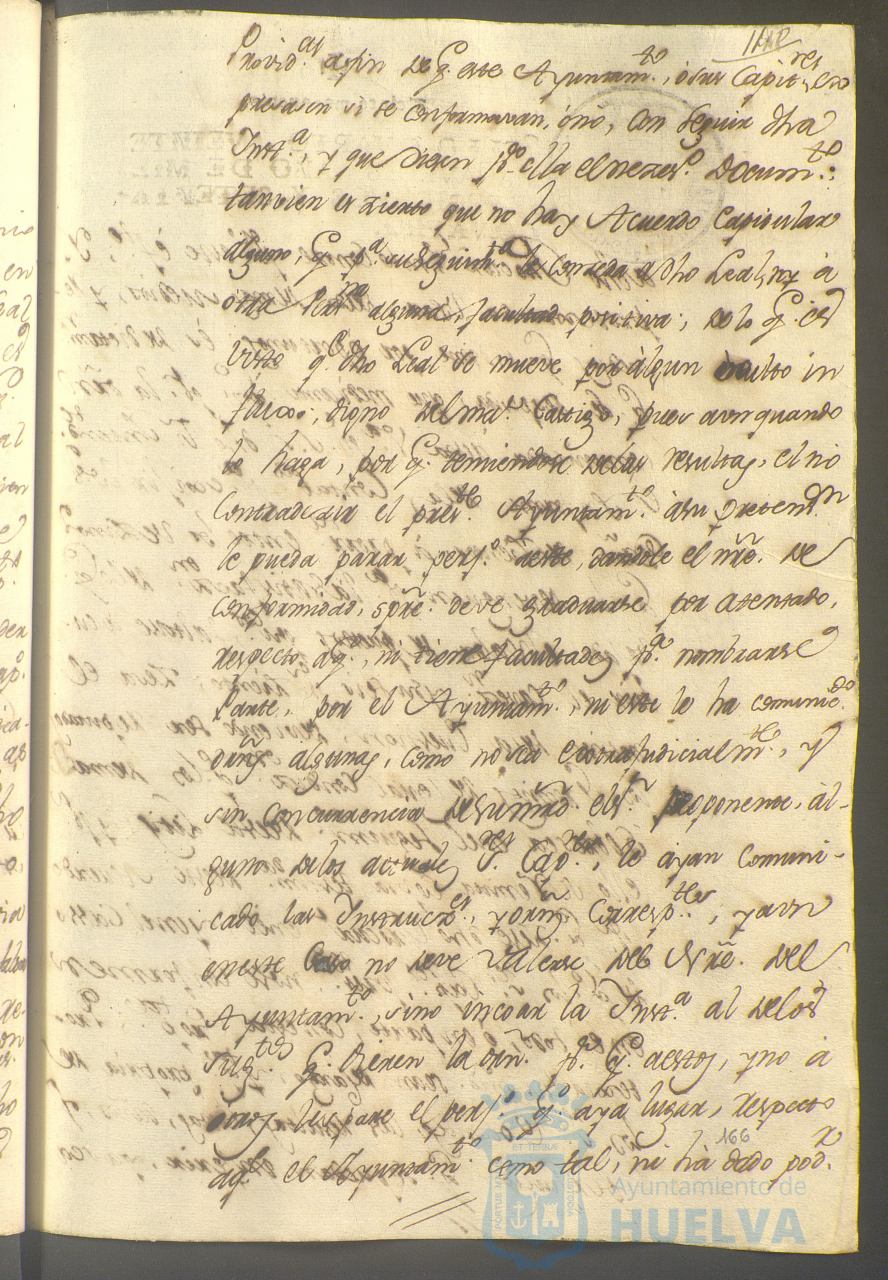 Provid.as afin de q. este Ayuntam.to, ó sus Capit.res ex
presasen si se conformavan, ó no, con seguir dha
Inst.a, y que diesen p.a ella el nezes.o Docum.to:
tanvien es zierto que no hay Acuerdo Capitular
alguno, q. p.a su seguim.to le conzeda a dho Leal, ny á
otra Per.na alguna, facultad positiva; de lo q. es
visto q. dho Leal se mueve por álgun óculto in
fluxo, digno del maór Castigo, pues aun quando
lo haga, por q. temiendose de las resultas, el no
Contradezir el pres.te Ayuntam.to á su pretens.n
le pueda parar perj.o á este, dandole el nre. de
conformidad, spre. deve graduarse por atentado,
respecto a q., ni tiene facultades p.a nombrarse
Parte, por el Ayuntam.to, ni este le ha comunic.do
órns algunas, como no sea extrajudicialm.te, y
sin concurrencia de su mrd. el S.r proponente, ál-
gunos de los actuales S.res Cap.res, le ayan Comuni-
cado las Instruczs., y órns Corresp.tes, y aun
en este Caso no deve valerse del Nre. del
Ayuntam.to, sino incoar la Inst.a al de los
Sug.tos q. dieren la orn. p.a q. a estos, y no á
otros les pare el perj.o q. aya lugar, respecto
a q.e el Ayuntam.to como tal, ni há dado pod.r
166
Ayuntamiento de
HUELVA